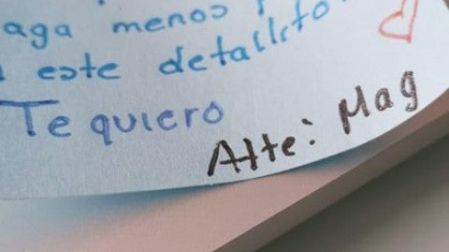 aga menos
este detallito
Te quiero
Atte: Mag